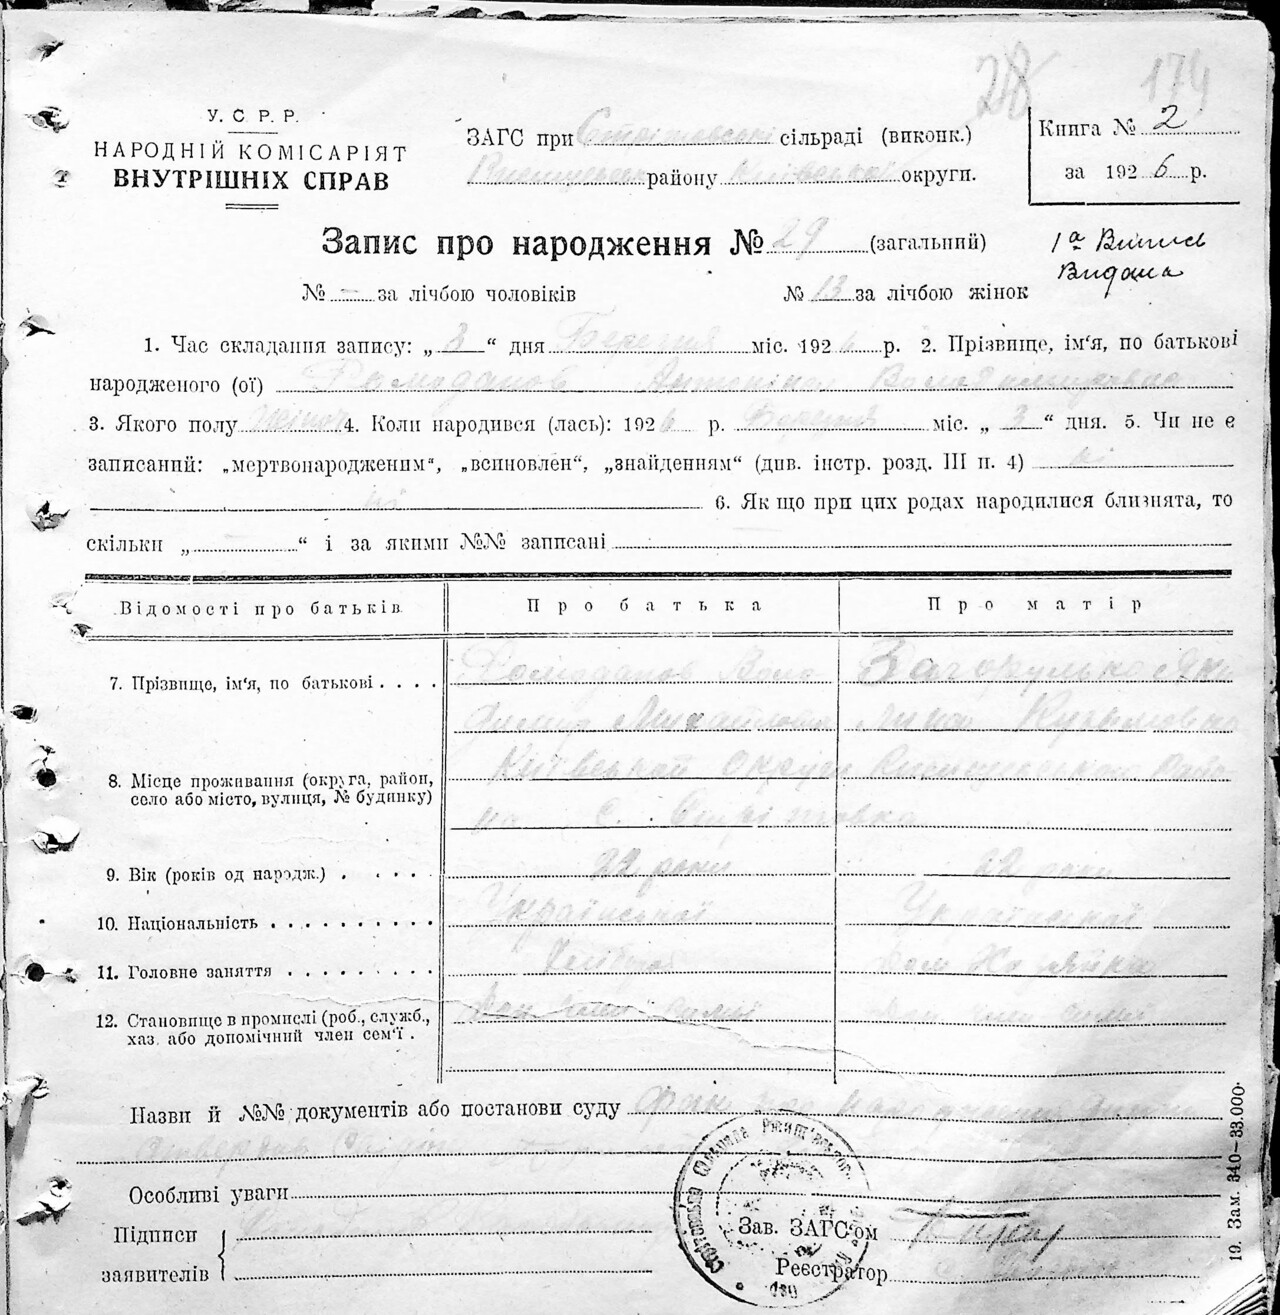 28 174
У. С. Р. Р.
НАРОДНІЙ КОМІСАРІЯТ
ВНУТРІШНІХ СПРАВ
ЗАГС при Стрітовській сільраді (виконк.)
району Київської округи.
Книга № 2
за 1926 р.
Запис про народження № 29 (загальний)
1а Випись
Видана
№ – за лічбою чоловіків
№ 13 за лічбою жінок
1. Час складання запису: „ 3 “ дня Березня міс. 1926 р. 2. Прізвище, ім'я, по батькові
народженого (ої) Домоданов Антоніна Володимировна
3. Якого полу жіноч 4. Коли народився (лась): 1926 р. Березня міс. „ 3 “ дня. 5. Чи не є
записаний: „мертвонародженим“, „всиновлен“, „знайденням“ (див. інстр. розд. III п. 4)
6. Як що при цих родах народилися близнята, то
скільки „ – “ і за якими №№ записані
Відомості про батьків
Про батька
Про матір
7. Прізвище, ім'я, по батькові . . . .
Домоданов Воло
Загорулько
димир Михайлович
лина Кузьмовна
8. Місце проживання (округа, район,
село або місто, вулиця, № будинку)
Київської округи
на с. Стрітовка
9. Вік (років од народж.) . . . . .
22 роки
22 роки
10. Національність . . . . . . . . . .
Української
Української
11. Головне заняття . . . . . . . . .
Хлібороб
Дом Хозяйка
12. Становище в промислі (роб., служб.,
хаз. або допомічний член сем'ї .
Доп член симї
Доп член симї
Назви й №№ документів або постанови суду
Особливі уваги
Підписи
заявителів
Зав. ЗАГС'ом
Реєстратор
19. Зам. 340—33.000.